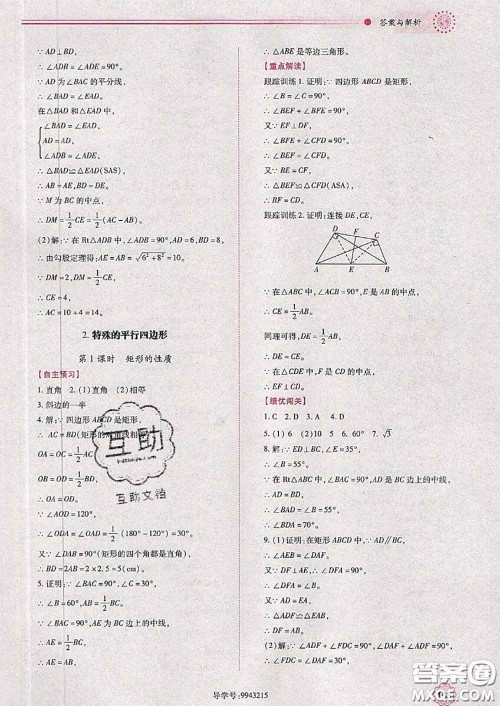 答案与解析
∵ AD⊥BD，
∴ ∠ADB = ∠ADE = 90°.
∵ AD 为∠BAC 的平分线，
∴ ∠BAD = ∠EAD.
在△BAD 和△EAD 中，
∠BAD = ∠EAD,
AD = AD,
∠ADB = ∠ADE,
∴ △BAD≌△EAD(SAS)，
∴ AB = AE, BD = DE.
∵ M 为 BC 的中点，
∴ DM = 1/2 CE = 1/2 (AC − AB).
(2)解：∵ 在 Rt△ADB 中，∠ADB = 90°, AD = 6, BD = 8，
∴ 由勾股定理得：AE = AB = √(6²+8²) = 10.
∵ DM = 2, DM = 1/2 CE,
∴ CE = 4,
∴ AC = 10 + 4 = 14.
2. 特殊的平行四边形
第 1 课时 矩形的性质
【自主预习】
1. 直角 2. (1)直角 (2)相等
3. 斜边的一半
4. 解：∵ 四边形 ABCD 是矩形，
∴ AC = BD(矩形的对角线相等)，
OA = OC = 1/2 AC,
OB = OD = 1/2 BD,
∴ OA = OD.
∵ ∠AOD = 120°,
∴ ∠ODA = ∠OAD = 1/2 (180° − 120°) = 30°.
又∵ ∠DAB = 90°(矩形的四个角都是直角)，
∴ BD = 2AB = 2 × 2.5 = 5(cm).
5. 证明：∵ ∠BAC = 90°, ∠C = 30°,
∴ ∠B = 60°,
又∵ AE 为 BC 边上的中线，
∴ AE = 1/2 BC = BE,
∴ △ABE 是等边三角形.
【重点解读】
跟踪训练 1. 证明：∵ 四边形 ABCD 是矩形，
∴ ∠B = ∠C = 90°,
∴ ∠BEF + ∠BFE = 90°.
又∵ EF⊥DF,
∴ ∠BFE + ∠CFD = 90°,
∴ ∠BEF = ∠CFD.
又∵ BE = CF,
∴ △BEF≌△CFD(ASA)，
∴ BF = CD.
跟踪训练 2. 证明：连接 DE, CE,
D
F
C
A
E
B
∵ ∠ACB = 90°, E 是 AB 的中点，
∴ CE = 1/2 AB.
同理可得，DE = 1/2 AB,
∴ DE = CE.
∵ F 是 CD 的中点，
∴ EF⊥CD.
【绩优闯关】
1. C 2. D 3. A 4. C
5. (1) 6 (2) 10 5 6. 60° 7. √3
8. 解：∵ ED⊥BC, ∠E = 35°,
∴ ∠B = 55°.
∵ 在 Rt△ABC 中，AD 是 BC 边上的中线，
∴ ∠B = ∠BAD = 55°,
∴ ∠BDA = 70°.
9. (1)证明：在矩形 ABCD 中，∵ AD∥BC,
∴ ∠AEB = ∠DAF,
又∵ DF⊥AE,
∴ ∠DFA = 90°,
∴ ∠DFA = ∠B.
又∵ AD = EA,
∴ △ADF≌△EAB,
∴ DF = AB.
(2)解：∵ ∠ADF + ∠FDC = 90°, ∠DAF + ∠ADF = 90°,
∴ ∠FDC = ∠DAF = 30°,
导学号：9943215
互助
互助文档
答案圈
MXQE.COM